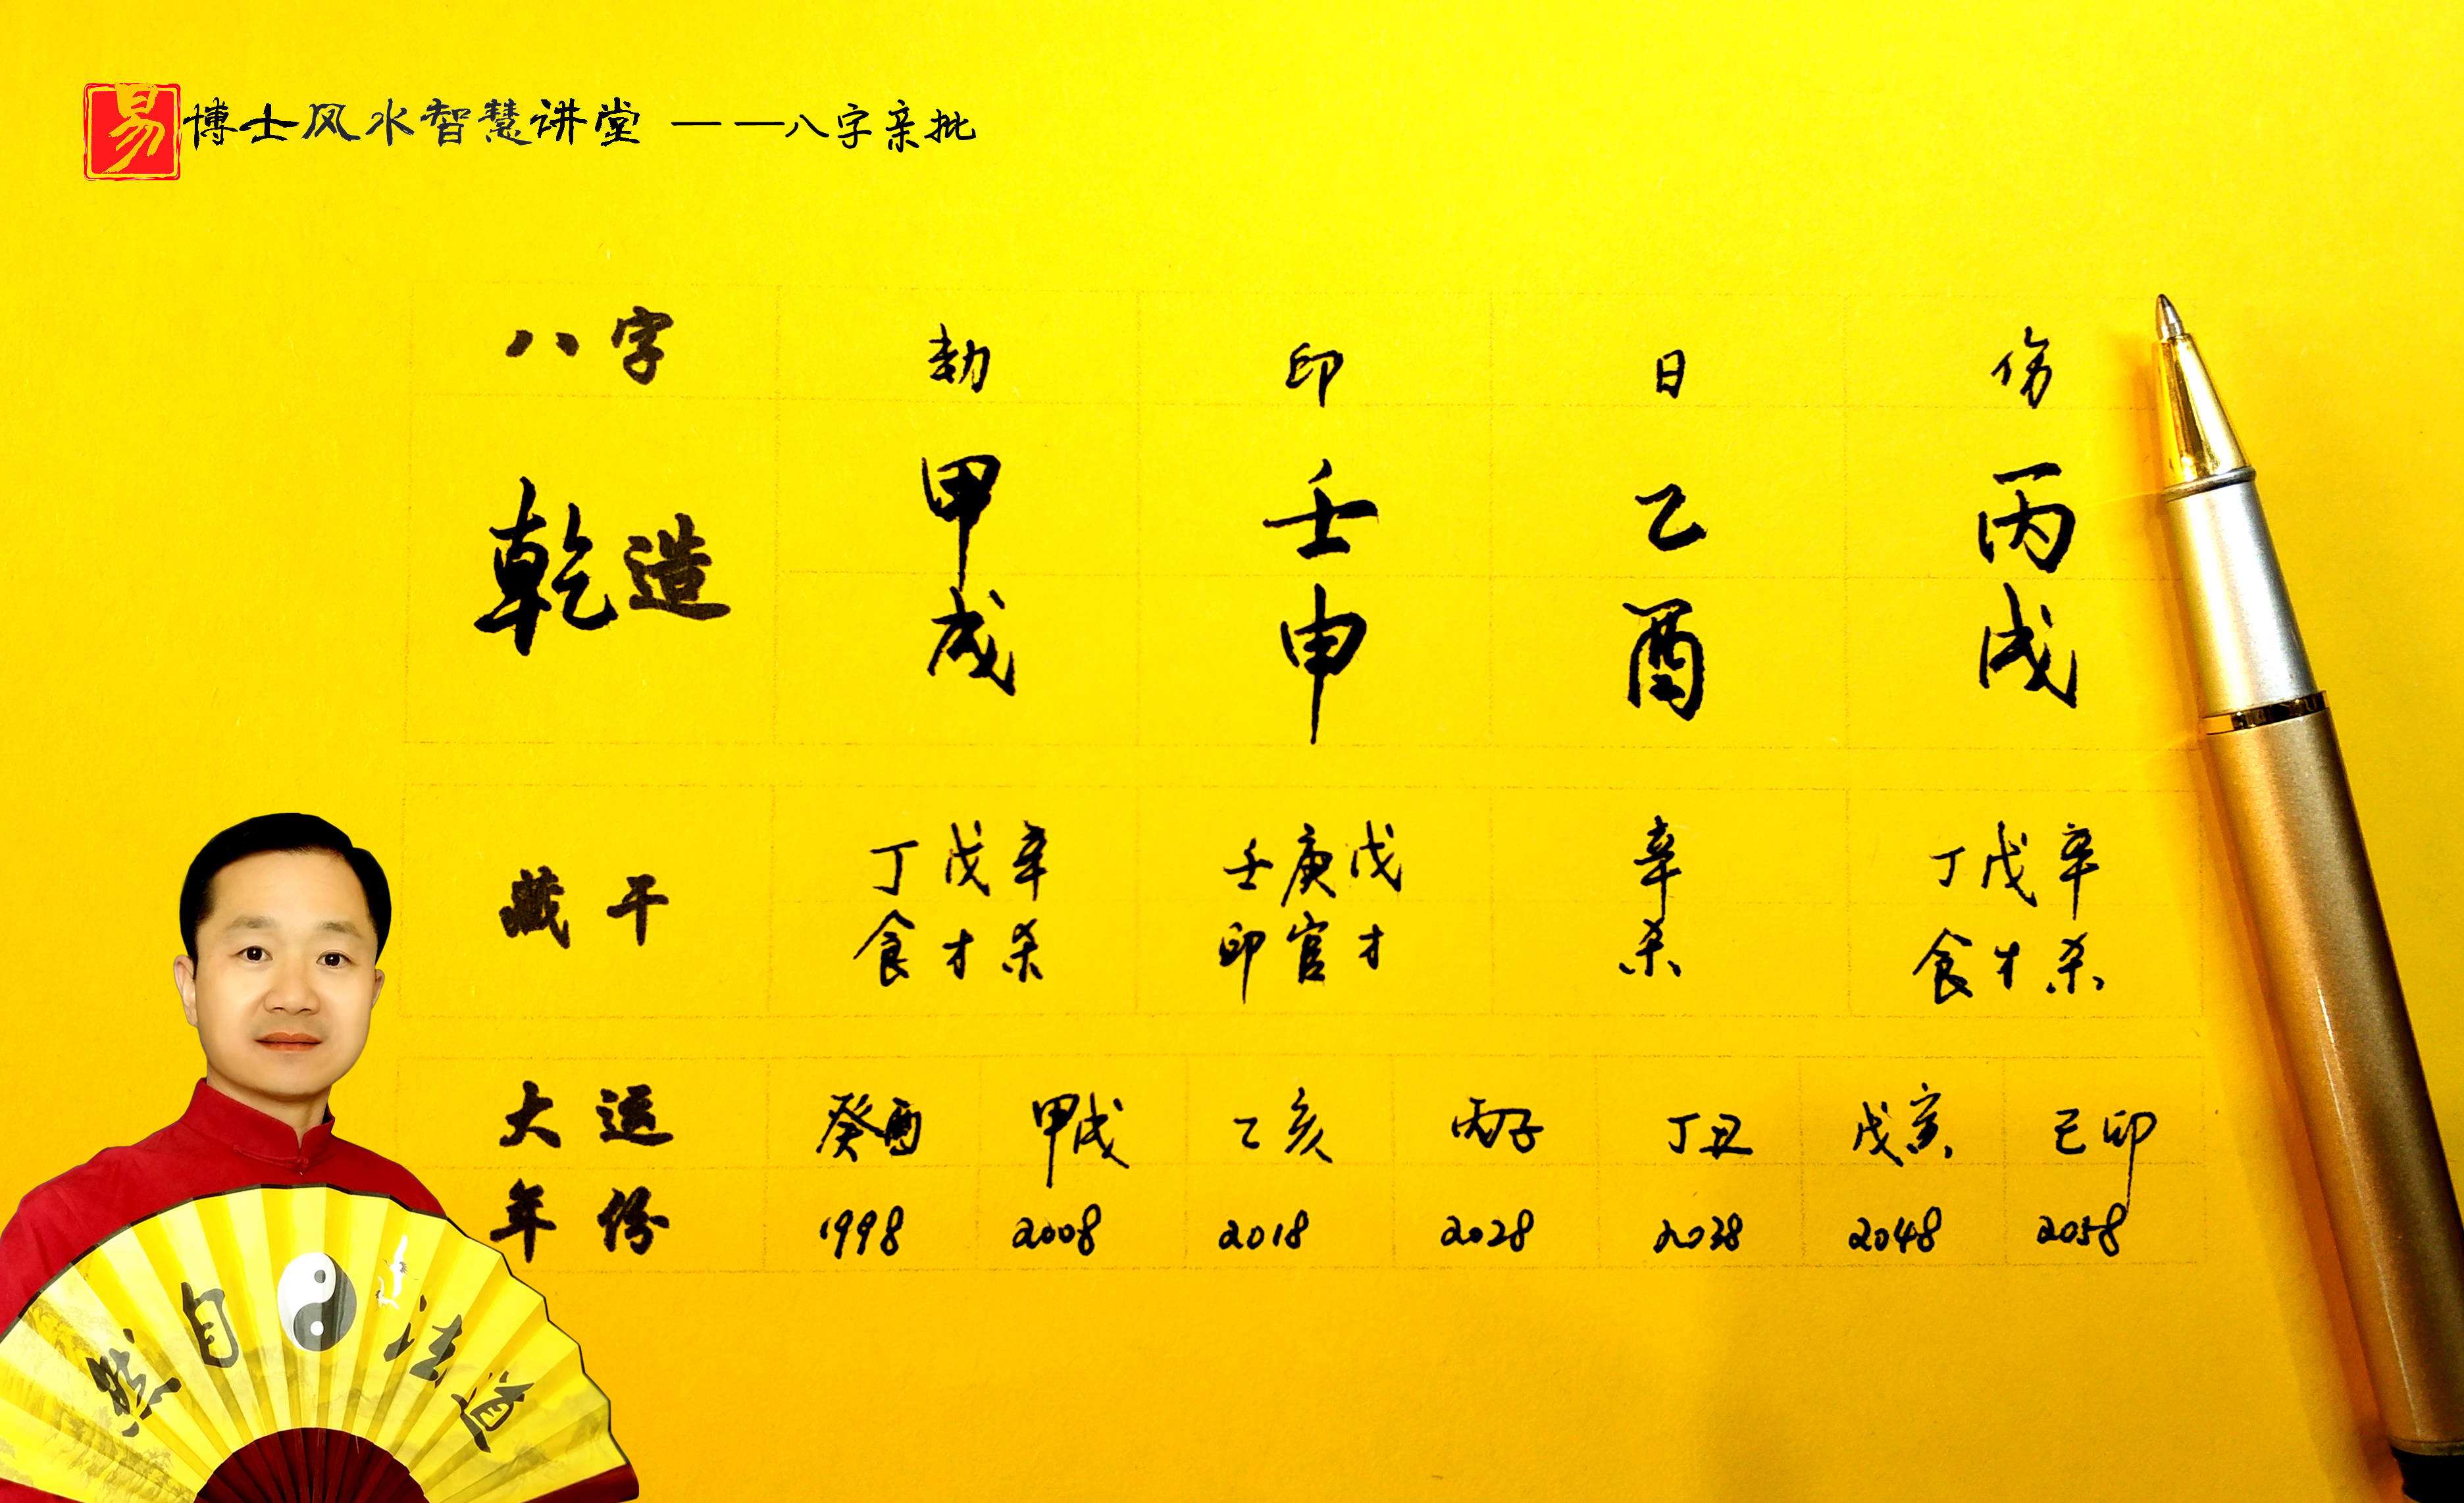 易博士风水智慧讲堂 ——八字亲批
八字 劫 印 日 伤
乾造 甲 壬 乙 丙
戌 申 酉 戌
藏干 丁戊辛 壬庚戊 辛 丁戊辛
食才杀 印官才 杀 食才杀
大运 癸酉 甲戌 乙亥 丙子 丁丑 戊寅 己卯
年份 1998 2008 2018 2028 2038 2048 2058
道法自然